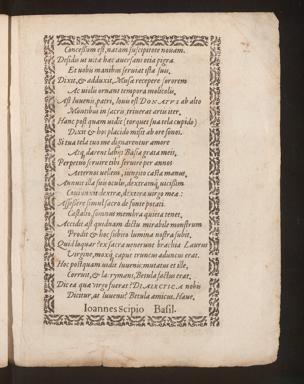 Concessum est, natam suscepitote nouam.
Desidis ut uita hac auersans otia pigra.
Et uobis manibus seruiat ista suis,
Dixit, & adduxit, Musæ recepere sororem
Ac uidui ornant tempora
Ast Iuuenis, patri, Iouis est DONATI ab alto
Montibus in sacris,
Hanc postquam uidit
Dixit & hos placido misit ab ore sonos.
Si tua tela tuo me dignarentur amore
Atq. darent labijs Basia grata meis,
Perpetuo seruire tibi seruire per annos
Aeternos uellem, iungito casta manus,
Annuit illa suis oculis, dextramq́; uicissim
dextra, dextera uirgo mea:
Assessere simul sacro de fonte potati.
Castalio, somnus membra quieta tenet,
Accidit ast quiddam dictu mirabile monstrum
Prodit & hoc subito lumina nostra subit,
Quid loquar? ex sacra uenerunt brachia Laurus
Virgine, moxq́; caput truncus aduncus erat.
Hoc postquam uidit Iuuenis; mutatus et ille,
Corruit, & lacrymans, Betula factus erat.
Dic ea quæ virgo fuerat? DIALECTICA nobis
Dicitur, at Iuuenis? Betula amicus. Haue,
Ioannes Scipio Basil.